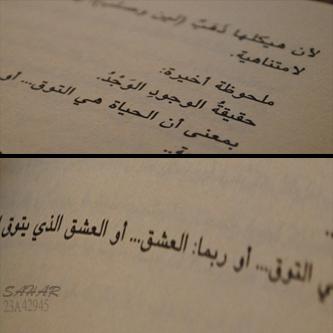 لأن هيكلها ذَهَبٌ (لين
لامتناهية.
ملحوظة أخيرة:
حقيقةُ الوجودِ الوَجْدُ.
بمعنى أن الحياة هي التوق... أو
التوق... أو ربما: العشق... أو العشق الذي يتوق
SAHAR
23A42945